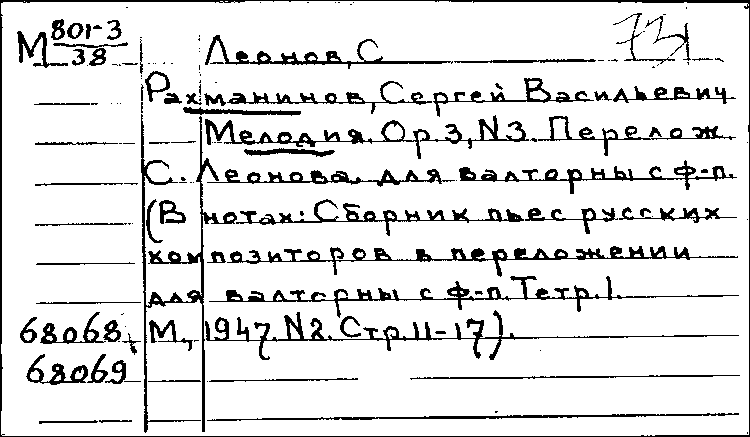 М 801-3/38 Леонов, С 731
Рахманинов, Сергей Васильевич
Мелодия. Ор. 3, N 3. Перелож.
С. Леонова. для валторны с ф-п.
(В нотах: Сборник пьес русских
композиторов в переложении
для валторны с ф-п. Тетр. 1.
68068, М., 1947. N 2. Стр. 11-17).
68069